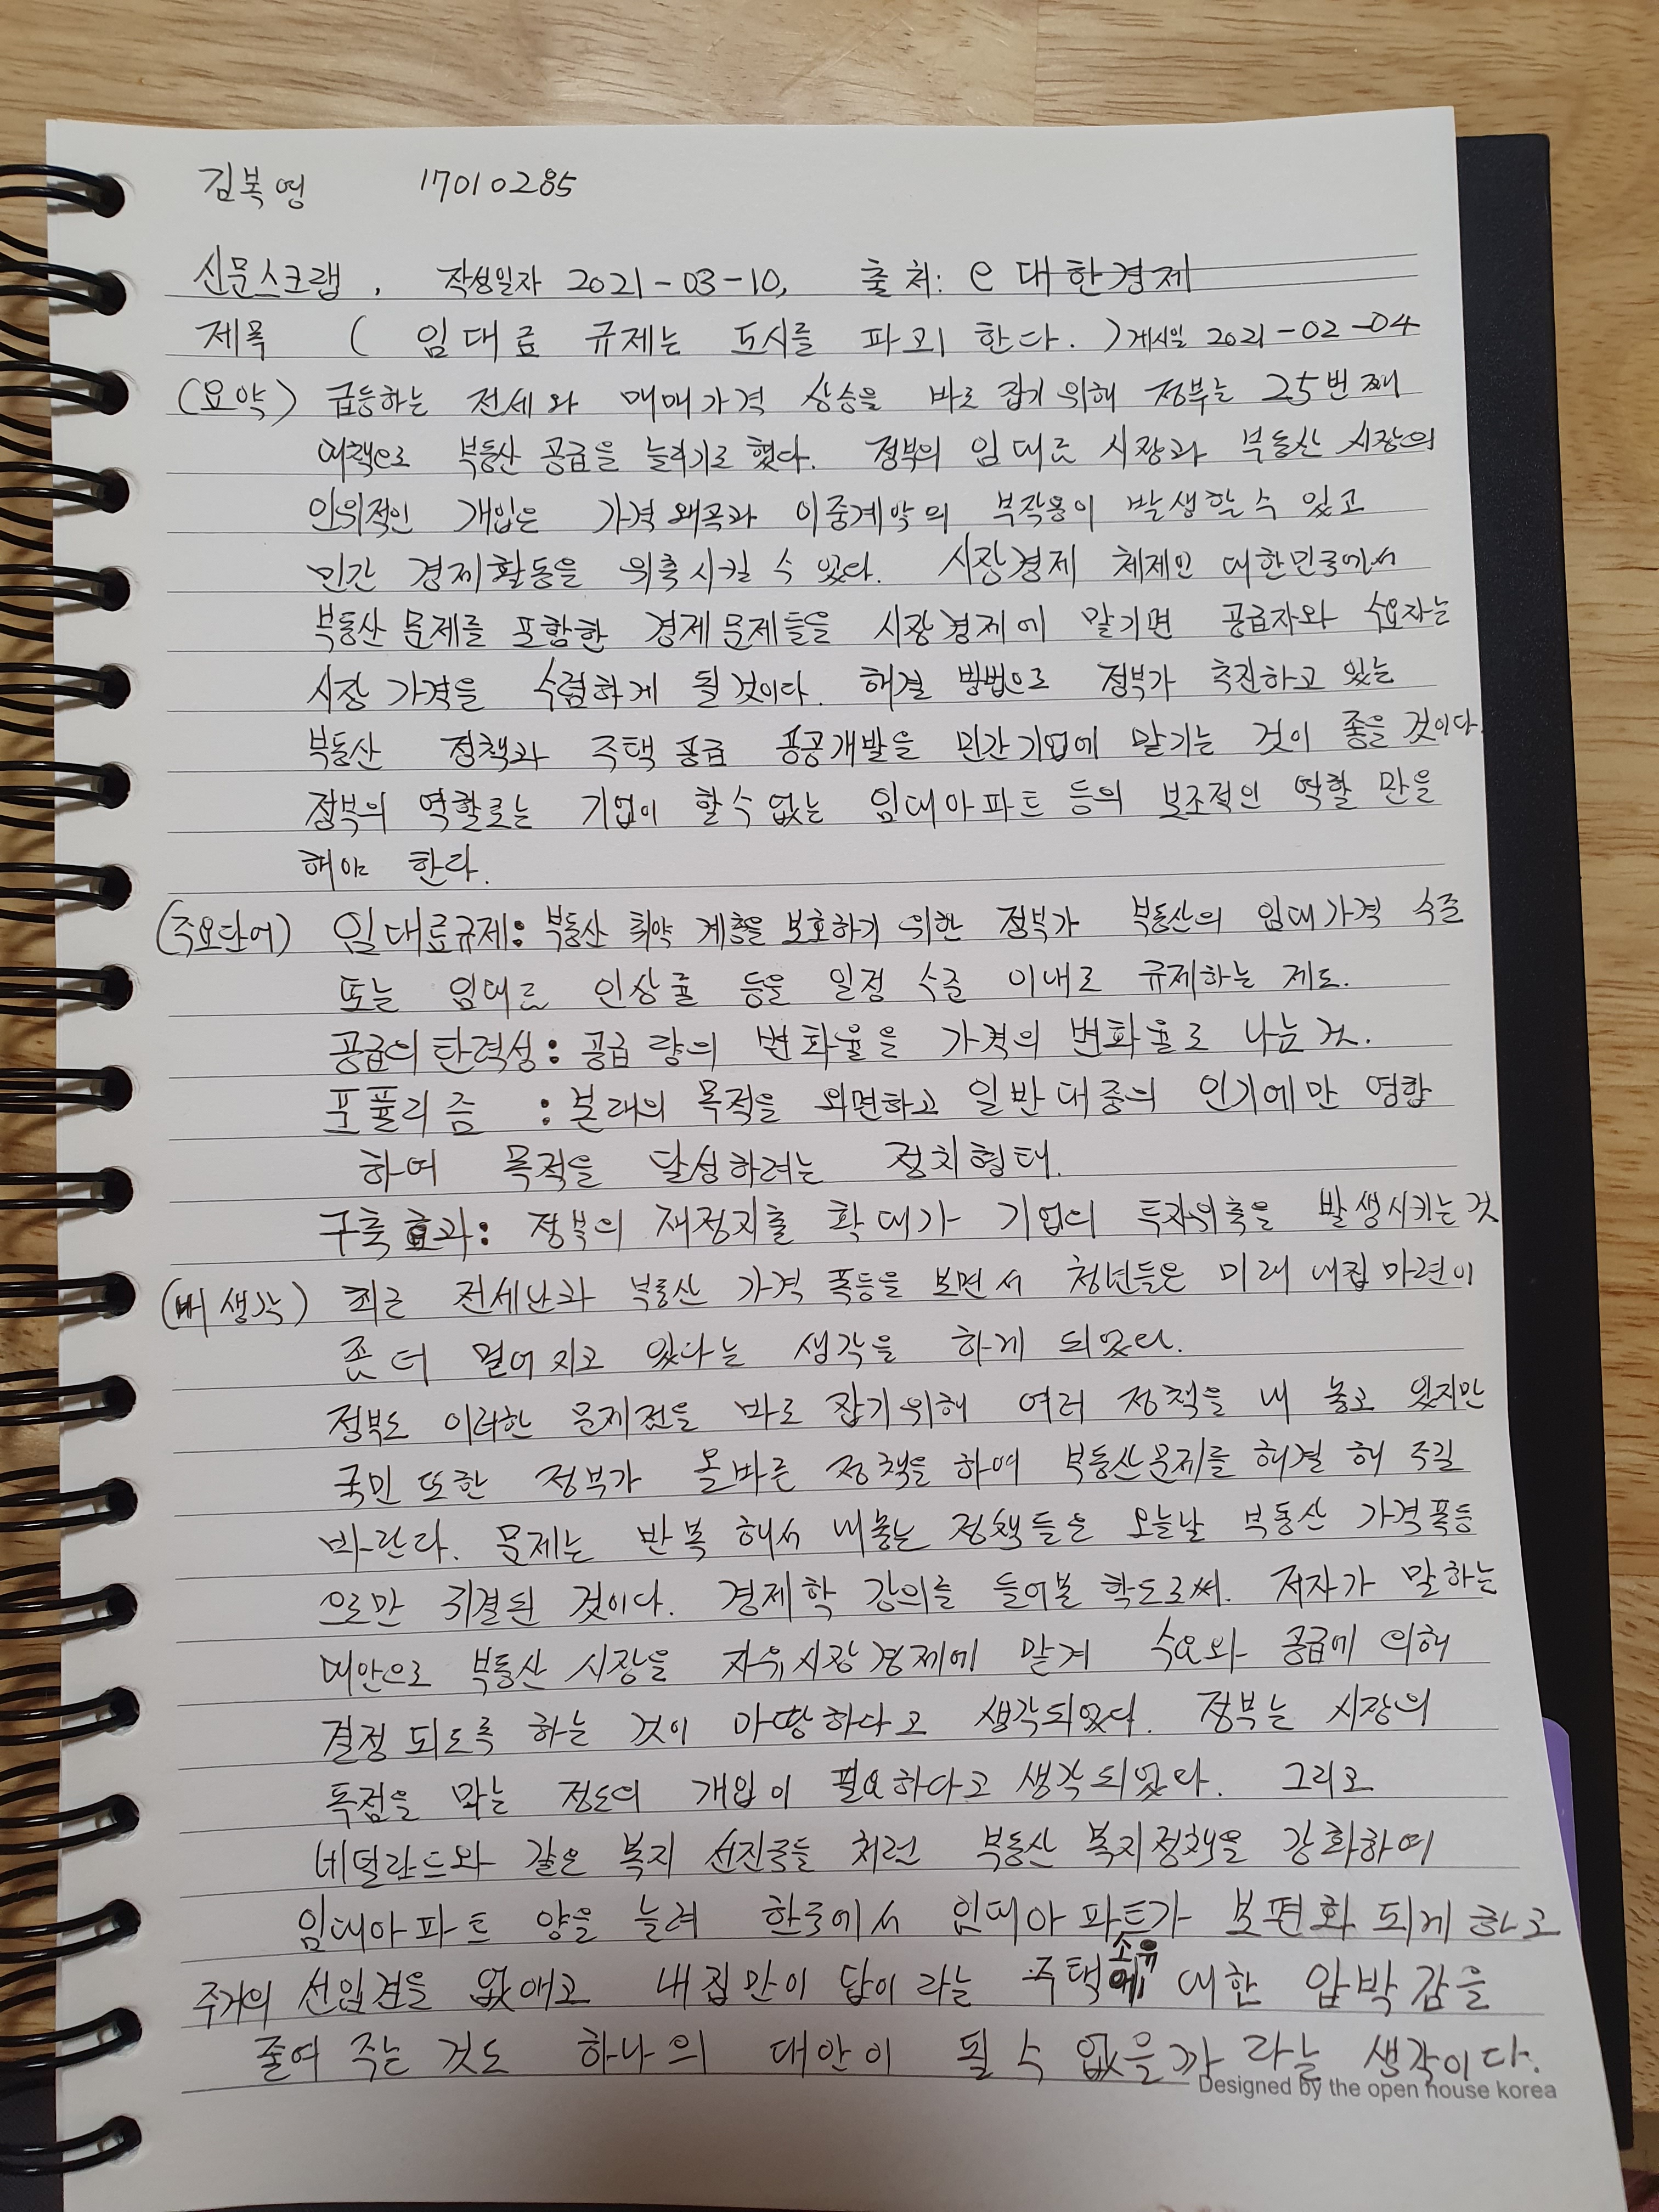 김복영 17010285
신문스크랩, 작성일자 2021-03-10, 출처: e대한경제
제목 ( 임대료 규제는 도시를 파괴 한다. ) 게시일 2021-02-04
(요약) 급등하는 전세와 매매가격 상승을 바로 잡기 위해 정부는 25번째
대책으로 부동산 공급을 늘리기로 했다. 정부의 임대료 시장과 부동산 시장의
인위적인 개입은 가격왜곡과 이중계약의 부작용이 발생할 수 있고
민간 경제활동을 위축시킬 수 있다. 시장경제 체제인 대한민국에서
부동산 문제를 포함한 경제문제들을 시장경제에 맡기면 공급자와 수요자는
시장 가격을 수렴하게 될것이다. 해결 방법으로 정부가 추진하고 있는
부동산 정책과 주택공급 공공개발을 민간기업에 맡기는 것이 좋을 것이다.
정부의 역할로는 기업이 할수없는 임대아파트 등의 보조적인 역할 만을
해야 한다.
(주요단어) 임대료규제: 부동산 취약 계층을 보호하기 위한 정부가 부동산의 임대가격 수준
또는 임대료 인상률 등을 일정 수준 이내로 규제하는 제도.
공급의 탄력성: 공급량의 변화율을 가격의 변화율로 나눈 것.
포퓰리즘 : 본래의 목적을 외면하고 일반대중의 인기에만 영합
하여 목적을 달성하려는 정치형태.
구축효과: 정부의 재정지출 확대가 기업의 투자위축을 발생시키는것
(내생각) 최근 전세난과 부동산 가격 폭등을 보면서 청년들은 미래 내집 마련이
좀 더 멀어지고 있다는 생각을 하게 되었다.
정부도 이러한 문제점을 바로 잡기위해 여러 정책을 내 놓고 있지만
국민 또한 정부가 올바른 정책을 하여 부동산문제를 해결 해 주길
바란다. 문제는 반복 해서 내놓는 정책들은 오늘날 부동산 가격폭등
으로만 귀결된 것이다. 경제학 강의를 들어본 학도로써. 저자가 말하는
대안으로 부동산 시장을 자유시장경제에 맡겨 수요와 공급에 의해
결정 되도록 하는 것이 마땅하다고 생각되었다. 정부는 시장의
독점을 막는 정도의 개입이 필요하다고 생각되었다. 그리고
네덜란드와 같은 복지 선진국들 처럼 부동산 복지정책을 강화하여
임대아파트 양을 늘려 한국에서 임대아파트가 보편화 되게 하고
주거의 선입견을 없애고 내집만이 답이 라는 주택소유에 대한 압박감을
줄여 주는 것도 하나의 대안이 될 수 없을까 라는 생각이다.
Designed by the open house korea